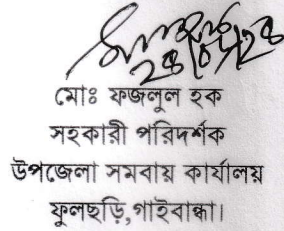 মোঃ ফজলুল হক
সহকারী পরিদর্শক
উপজেলা সমবায় কার্যালয়
ফুলছড়ি,গাইবান্ধা।